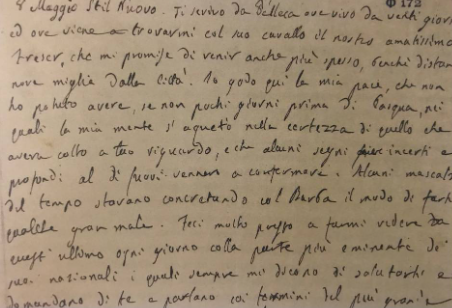 8 Maggio Stil Nuovo. Ti scrivo da Belleca ove vivo da venti giorni
ed ove viene a trovarmi col suo cavallo il nostro amatissimo
che mi promise di venir anche più spesso, benchè distan
nove miglia dalla Città. Io godo qui la mia pace, che non
ho potuto avere, se non pochi giorni prima di Pasqua, nei
quali la mia mente s'aquetò nella certezza di quello che
aveva colto a tuo riguardo, e che alcuni segni incerti e
profondi al di fuori vennero a confermare. Alcuni mascalz
del tempo stavano concretando col Barba il modo di farti
qualche gran male. Feci molto presto a farmi vedere da
quest ultimo ogni giorno colla parte più eminente dei
suoi nazionali i quali sempre mi dicono di salutarti e
domandano di te e parlano coi termini del più